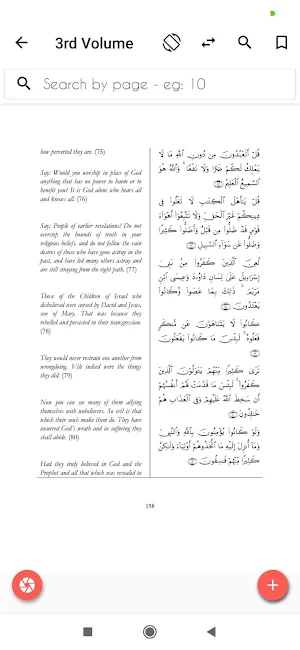 3rd Volume
Search by page - eg: 10
how perverted they are. (75)
Say: Would you worship in place of God
anything that has no power to harm or to
benefit you? It is God alone who hears all
and knows all. (76)
Say: People of earlier revelations! Do not
overstep the bounds of truth in your
religious beliefs, and do not follow the vain
desires of those who have gone astray in the
past, and have led many others astray and
are still straying from the right path. (77)
Those of the Children of Israel who
disbelieved were cursed by David and Jesus,
son of Mary. That was because they
rebelled and persisted in their transgression.
(78)
They would never restrain one another from
wrongdoing. Vile indeed were the things
they did. (79)
Now you can see many of them allying
themselves with unbelievers. So evil is that
which their souls make them do. They have
incurred God's wrath and in suffering they
shall abide. (80)
Had they truly believed in God and the
Prophet and all that which was revealed to
قُلْ أَتَعْبُدُونَ مِن دُونِ ٱللَّهِ مَا لَا
يَمْلِكُ لَكُمْ ضَرًّا وَلَا نَفْعًا ۚ وَٱللَّهُ هُوَ
ٱلسَّمِيعُ ٱلْعَلِيمُ
قُلْ يَٰٓأَهْلَ ٱلْكِتَٰبِ لَا تَغْلُوا۟ فِى
دِينِكُمْ غَيْرَ ٱلْحَقِّ وَلَا تَتَّبِعُوٓا۟ أَهْوَآءَ
قَوْمٍ قَدْ ضَلُّوا۟ مِن قَبْلُ وَأَضَلُّوا۟ كَثِيرًا
وَضَلُّوا۟ عَن سَوَآءِ ٱلسَّبِيلِ
لُعِنَ ٱلَّذِينَ كَفَرُوا۟ مِنۢ بَنِىٓ
إِسْرَٰٓءِيلَ عَلَىٰ لِسَانِ دَاوُۥدَ وَعِيسَى ٱبْنِ
مَرْيَمَ ۚ ذَٰلِكَ بِمَا عَصَوا۟ وَّكَانُوا۟
يَعْتَدُونَ
كَانُوا۟ لَا يَتَنَاهَوْنَ عَن مُّنكَرٍ
فَعَلُوهُ ۚ لَبِئْسَ مَا كَانُوا۟ يَفْعَلُونَ
تَرَىٰ كَثِيرًا مِّنْهُمْ يَتَوَلَّوْنَ ٱلَّذِينَ
كَفَرُوا۟ ۚ لَبِئْسَ مَا قَدَّمَتْ لَهُمْ أَنفُسُهُمْ
أَن سَخِطَ ٱللَّهُ عَلَيْهِمْ وَفِى ٱلْعَذَابِ هُمْ
خَٰلِدُونَ
وَلَوْ كَانُوا۟ يُؤْمِنُونَ بِٱللَّهِ وَٱلنَّبِىِّ
وَمَآ أُنزِلَ إِلَيْهِ مَا ٱتَّخَذُوهُمْ أَوْلِيَآءَ وَلَٰكِنَّ
كَثِيرًا مِّنْهُمْ فَٰسِقُونَ
158